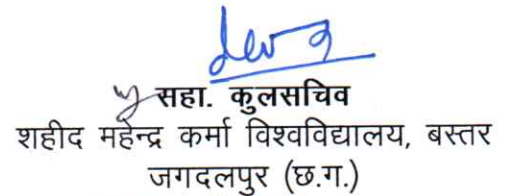 सहा. कुलसचिव
शहीद महेन्द्र कर्मा विश्वविद्यालय, बस्तर
जगदलपुर (छ.ग.)